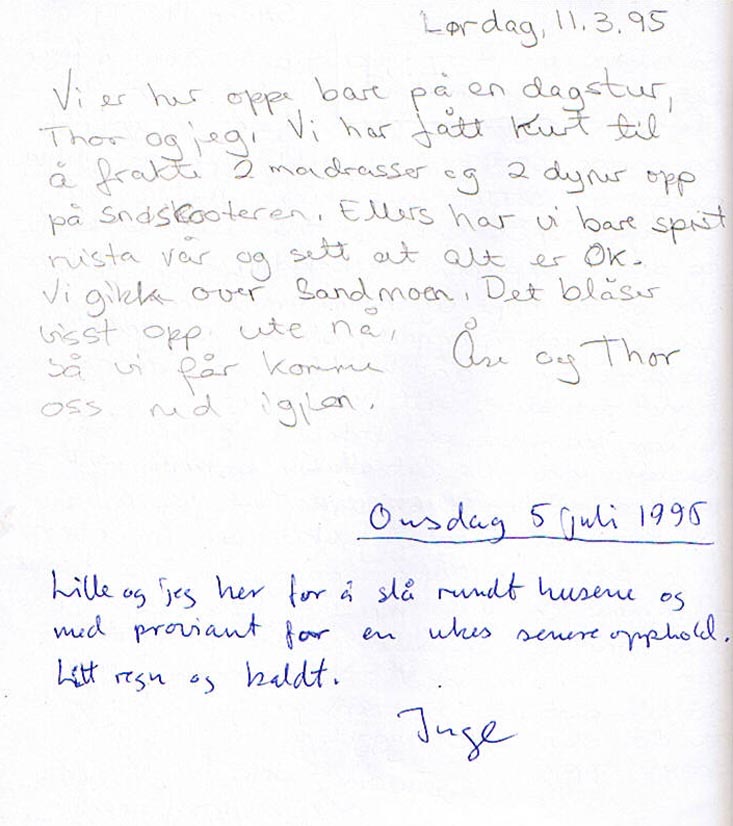 Lørdag, 11.3.95
Vi er her oppe bare på en dagstur,
Thor og jeg. Vi har fått Kurt til
å frakte 2 madrasser og 2 dyner opp
på snøskooteren. Ellers har vi bare spist
nista vår og sett at alt er OK.
Vi gikk over Sandmoen. Det blåser
visst opp ute nå,
så vi får komme
oss ned igjen.
Åse og Thor
Onsdag 5 juli 1995
Lille og jeg her for å slå rundt husene og
med proviant for en ukes senere opphold.
Litt regn og kaldt.
Inge